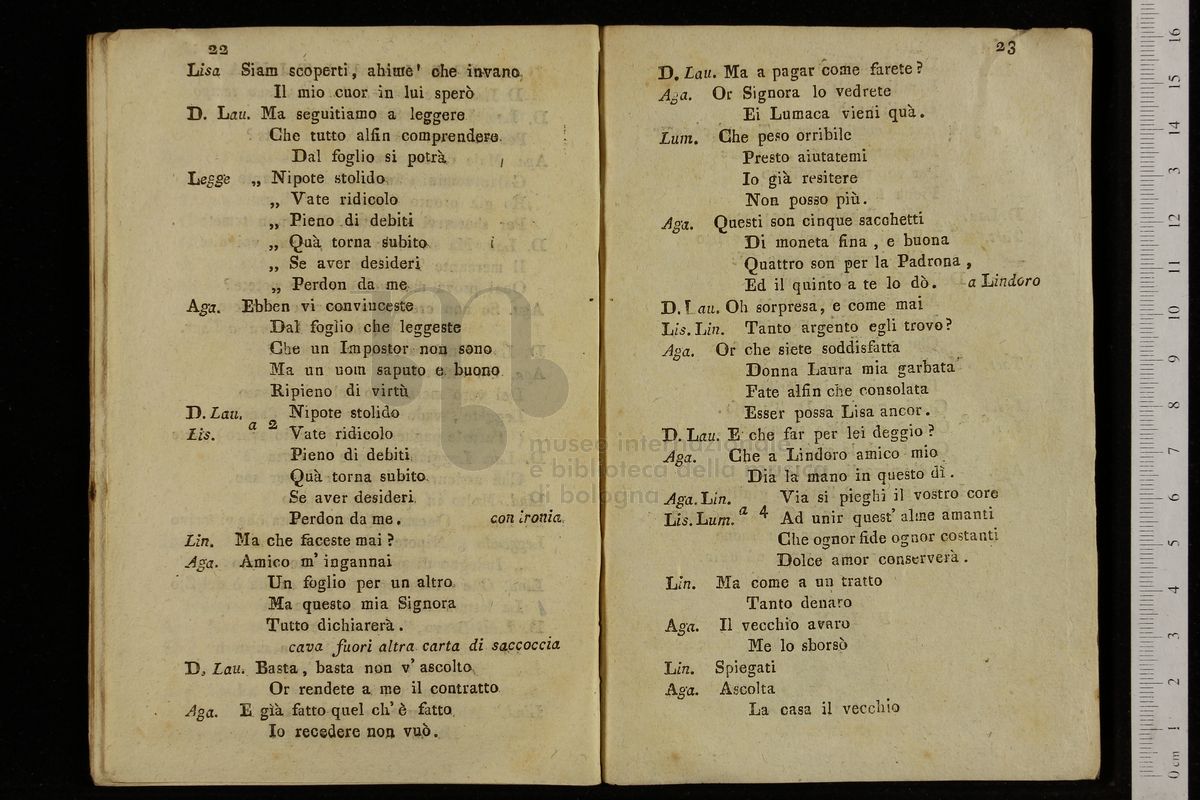 22
Lisa Siam scoperti, ahimè! che invano
Il mio cuor in lui sperò
D. Lau. Ma seguitiamo a leggere
Che tutto alfin comprendere
Dal foglio si potrà
Legge „ Nipote stolido
„ Vate ridicolo
„ Pieno di debiti
„ Quà torna subito
„ Se aver desideri
„ Perdon da me
Aga. Ebben vi convinceste
Dal foglio che leggeste
Che un Impostor non sono
Ma un uom saputo e buono
Ripieno di virtù
D. Lau. Nipote stolido
Lis. a 2 Vate ridicolo
Pieno di debiti
Quà torna subito
Se aver desideri
Perdon da me. con ironia
Lin. Ma che faceste mai?
Aga. Amico m' ingannai
Un foglio per un altro
Ma questo mia Signora
Tutto dichiarerà.
cava fuori altra carta di saccoccia
D. Lau. Basta, basta non v' ascolto
Or rendete a me il contratto
Aga. E già fatto quel ch' è fatto
Io recedere non vuò.
23
D. Lau. Ma a pagar come farete?
Aga. Or Signora lo vedrete
Ei Lumaca vieni quà.
Lum. Che peso orribile
Presto aiutatemi
Io già resitere
Non posso più.
Aga. Questi son cinque sacchetti
Di moneta fina, e buona
Quattro son per la Padrona,
Ed il quinto a te lo dò. a Lindoro
D. Lau. Oh sorpresa, e come mai
Lis. Lin. Tanto argento egli trovo?
Aga. Or che siete soddisfatta
Donna Laura mia garbata
Fate alfin che consolata
Esser possa Lisa ancor.
D. Lau. E che far per lei deggio?
Aga. Che a Lindoro amico mio
Dia la mano in questo dì.
Aga. Lin. Via si pieghi il vostro core
Lis. Lum. a 4 Ad unir quest' alme amanti
Che ognor fide ognor costanti
Dolce amor conserverà.
Lin. Ma come a un tratto
Tanto denaro
Aga. Il vecchio avaro
Me lo sborsò
Lin. Spiegati
Aga. Ascolta
La casa il vecchio
museo internazionale
e biblioteca della musica
di bologna
0 cm 1 2 3 4 5 6 7 8 9 10 11 12 13 14 15 16